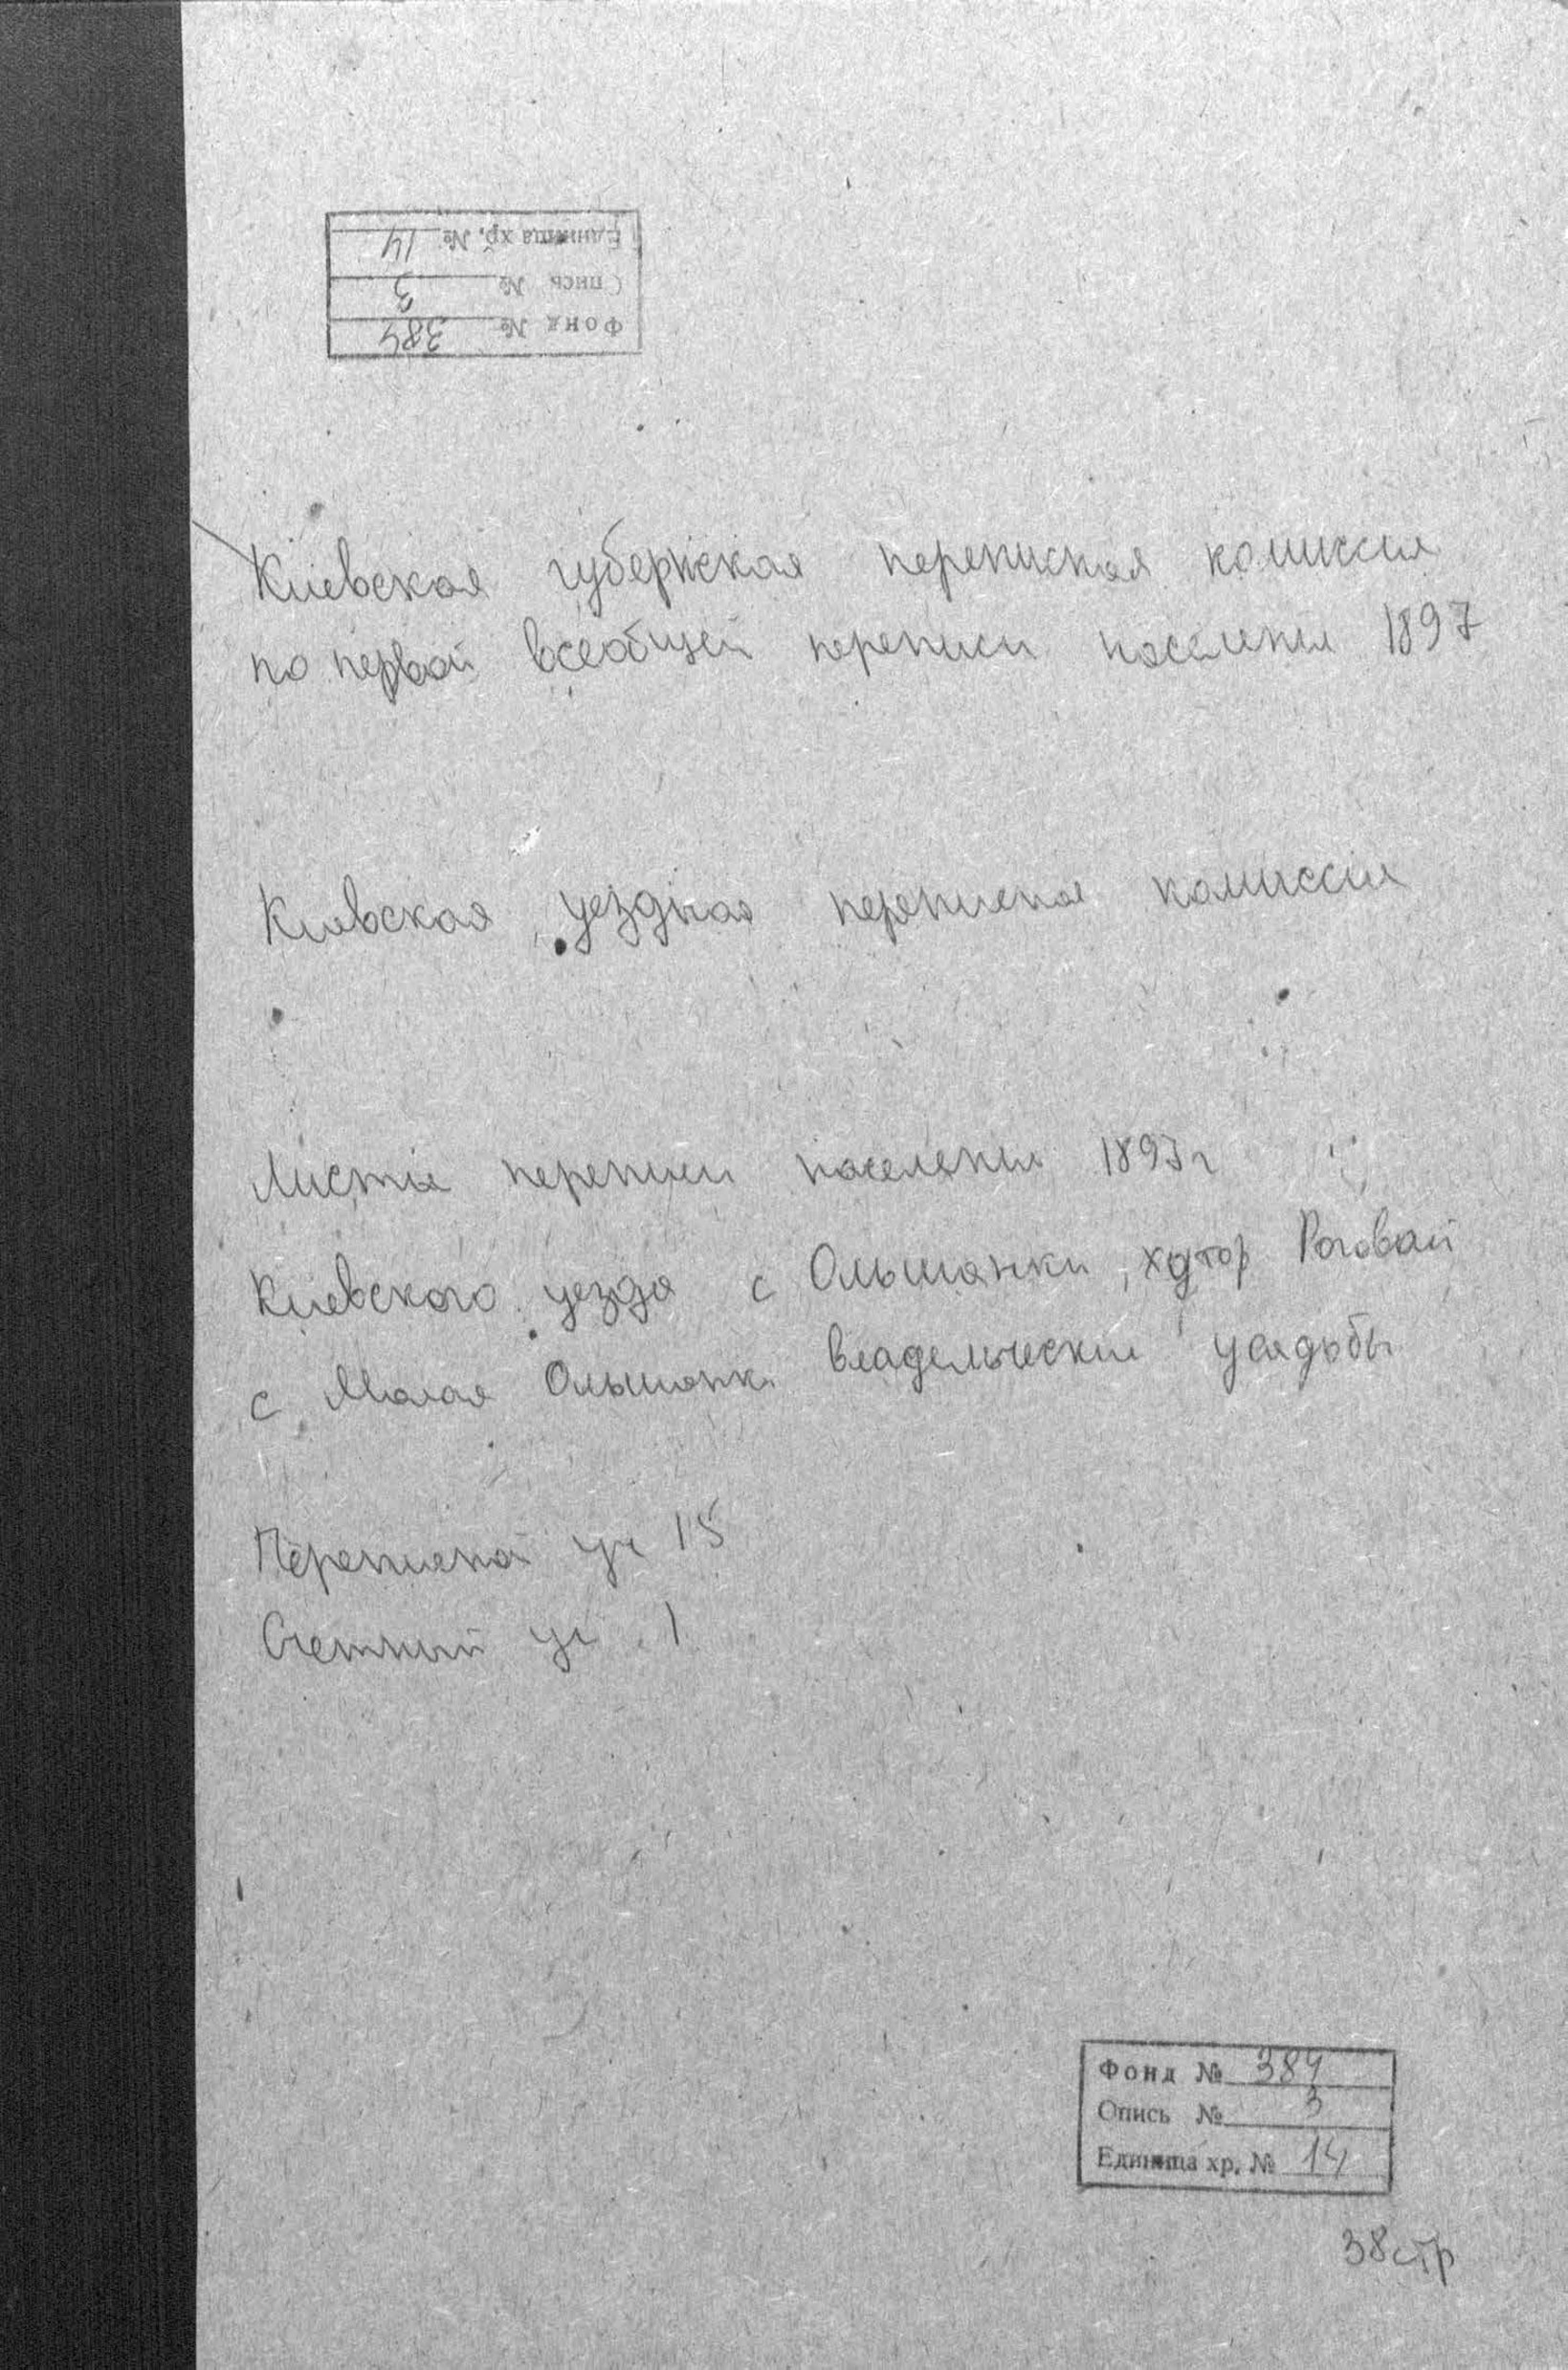 Единица хр. № 14
Опись № 3
Фонд № 384
Киевская губернская переписная комиссия
по первой всеобщей переписи населения 1897
Киевская уездная переписная комиссия
Листы переписи населения 1897 г
Киевского уезда с Ольшанки, хутор Роговой
с Малая Ольшанка владельческие усадьбы
Переписной уч 15
Счетный уч 1
Фонд № 384
Опись № 3
Единица хр. № 14
38 стр